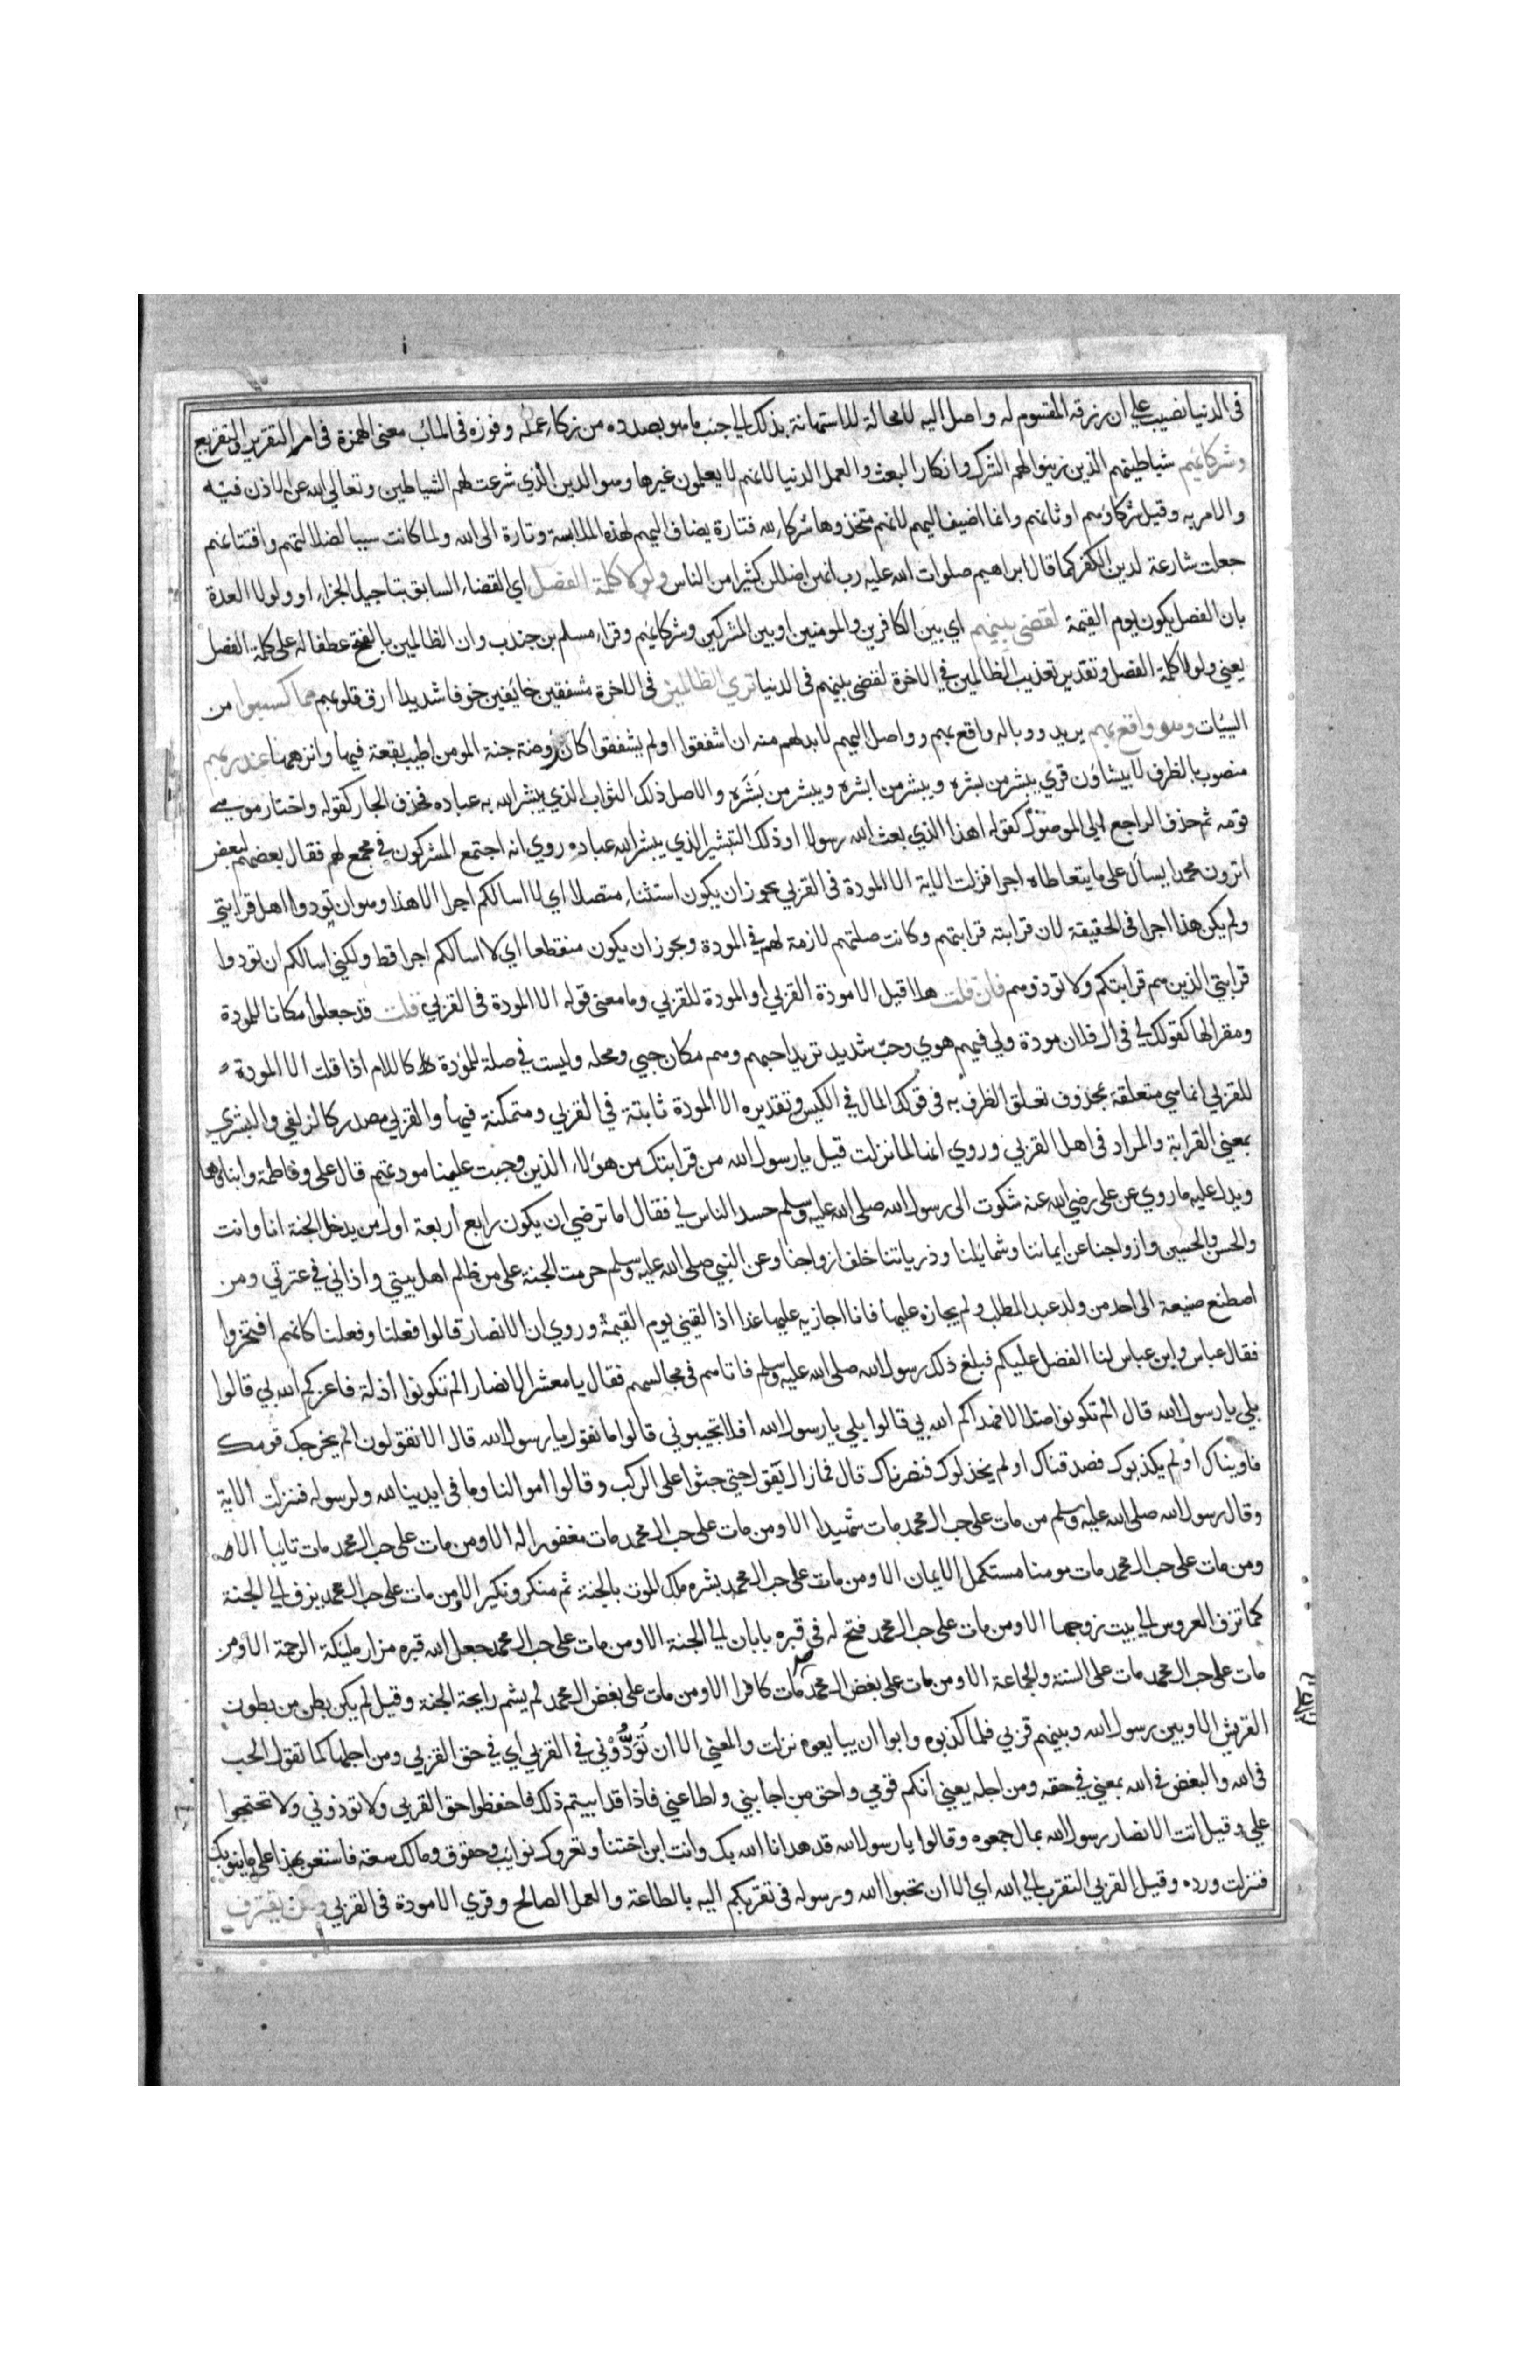 فى الدنيا نصيب على ان رزقه المقسوم له واصل اليه لا محالة للاستهانة بذلك الي جنب ما هو بصدده من زكاء عمله وفوزه فى المآب معنى الهمزة فى ام التقرير والتقريع
وشركائهم شياطينهم الذين زينوا لهم الشرك وانكار البعث والعمل للدنيا لانهم لا يعلمون غيرها وهو الدين الذي شرعت لهم الشياطين وتعالي الله عن الاذن فيه
والامر به وقيل شركاؤهم اوثانهم وانما اضيف اليهم لانهم متخذوها شركاء لله فتارة يضاف اليهم لهذه الملابسة وتارة الى الله ولما كانت سببا لضلالتهم وافتتانهم
جعلت شارعة لدين الكفر كما قال ابراهيم صلوات الله عليه رب انهن اضللن كثيرا من الناس ولولا كلمة الفصل اي القضاء السابق بتاجيل الجزاء او ولولا العدة
بان الفصل يكون يوم القيمة لقضى بينهم اي بين الكافرين والمومنين او بين المشركين وشركائهم وقراء مسلم بن جندب وان الظالمين بالفتح عطفا له على كلمة الفصل
يعني ولولا كلمة الفصل وتقدير تعذيب الظالمين في الاخرة لقضى بينهم فى الدنيا تري الظالمين فى الاخرة مشفقين خائفين خوفا شديدا ارق قلوبهم مما كسبوا من
السيئات وهو واقع بهم يريد ووباله واقع بهم وواصل اليهم لا بد لهم منه ان اشفقوا او لم يشفقوا كان روضة جنة المومن اطيب بقعة فيها وانزهها عند ربهم
منصوب بالظرف لا بيشاؤن قري يبشر من بشره ويبشر من ابشره ويبشر من بَشَره والاصل ذلك الثواب الذي يبشر الله به عباده فحذف الجار كقوله واختار موسي
قومه ثم حذف الراجع الي الموصول كقوله اهذا الذي بعث الله رسولا او ذلك التبشير الذي يبشر الله عباده روي انه اجتمع المشركون في مجمع لهم فقال بعضهم لبعض
اترون محمدا يسأل على ما يتعاطاه اجرا فنزلت الاية الا المودة فى القربي يجوز ان يكون استثناء متصلا اي لا اسالكم اجرا الا هذا وهو ان تودوا اهل قرابتي
ولم يكن هذا اجرا فى الحقيقة لان قرابته قرابتهم وكانت صلتهم لازمة لهم في المودة ويجوز ان يكون منقطعا اي لا اسالكم اجرا قط ولكني اسالكم ان تودوا
قرابتي الذين هم قرابتكم ولا تودوهم فان قلت هلا قيل الا مودة القربي او المودة للقربي وما معنى قوله الا المودة فى القربي قلت قد جعلوا مكانا للمودة
ومقرا لها كقولك لي فى ال فلان مودة ولي فيهم هوي وحبّ شديد تريد احبهم وهم مكان حبي ومحله وليست في صلة للمودة كاللام اذا قلت الا المودة
للقربي انما هي متعلقة بمحذوف تعلق الظرف به فى قولك المال في الكيس وتقديره الا المودة ثابتة في القربي ومتمكنة فيها والقربي مصدر كالزلفي والبشري
بمعني القرابة والمراد فى اهل القربي وروي انها لما نزلت قيل يا رسول الله من قرابتك من هولاء الذين وجبت علينا مودتهم قال على وفاطمة وابناهما
ويدل عليه ما روي عن على رضي الله عنه شكوت الى رسول الله صلى الله عليه وسلم حسد الناس لي فقال اما ترضي ان يكون رابع أربعة اول من يدخل الجنة انا وانت
والحسن والحسين وازواجنا عن ايماننا وشمائلنا وذرياتنا خلف ازواجنا وعن النبي صلى الله عليه وسلم حرمت الجنة على من ظلم اهل بيتي واذاني في عترتي ومن
اصطنع صنيعة الى احد من ولد عبد المطلب ولم يجازه عليها فانا اجازيه عليها غدا اذا لقيني يوم القيمة وروي ان الانصار قالوا فعلنا وفعلنا كانهم افتخروا
فقال عباس وابن عباس لنا الفضل عليكم فبلغ ذلك رسول الله صلى الله عليه وسلم فاتاهم فى مجالسهم فقال يا معشر الانصار الم تكونوا اذلة فاعزكم الله بي قالوا
بلي يا رسول الله قال الم تكونوا ضلالا فهداكم الله بي قالوا بلي يا رسول الله قال افلا تجيبوني قالوا ما نقول يا رسول الله قال الا تقولون الم يخرجك قومك
فاويناك او لم يكذبوك فصدقناك او لم يخذلوك فنصرناك قال فما زال يقول حتي جثوا على الركب وقالوا اموالنا وما فى ايدينا لله ولرسوله فنزلت الاية
وقال رسول الله صلى الله عليه وسلم من مات على حب ال محمد مات شهيدا الا ومن مات على حب ال محمد مات مغفورا له الا ومن مات على حب ال محمد مات تايبا الا
ومن مات على حب ال محمد مات مومنا مستكمل الايمان الا ومن مات على حب ال محمد بشره ملك الموت بالجنة ثم منكر ونكير الا ومن مات على حب ال محمد يزف الي الجنة
كما تزف العروس الي بيت زوجها الا ومن مات على حب ال محمد فتح له في قبره بابان الي الجنة الا ومن مات على حب ال محمد جعل الله قبره مزار مليكة الرحمة الا ومن
مات على حب ال محمد مات على السنة والجماعة الا ومن مات على بغض ال محمد مات كافرا الا ومن مات على بغض ال محمد لم يشم رايحة الجنة وقيل لم يكن بطن من بطون
القريش الا وبين رسول الله وبينهم قربي فلما كذبوه وابوا ان يبايعوه نزلت والمعني الا ان تَوَدُّوْني في القربي اي في حق القربي ومن اجلها كما تقول الحب
فى الله والبغض في الله بمعني في حقه ومن اجله يعني انكم قومي واحق من اجابني واطاعني فاذا قد ابيتم ذلك فاحفظوا حق القربي ولا تؤذوني ولا تهتجوا
علي وقيل اتت الانصار رسول الله بمال جمعوه وقالوا يا رسول الله قد هدانا الله بك وانت ابن اختنا وتعروك نوايب وحقوق ومالك سعة فاستعن بهذا على ما ينوبك
فنزلت ورده وقيل القربي التقرب الي الله اي الا ان تحبوا الله ورسوله فى تقربكم اليه بالطاعة والعمل الصالح وقري الا مودة فى القربي ومن يقترف